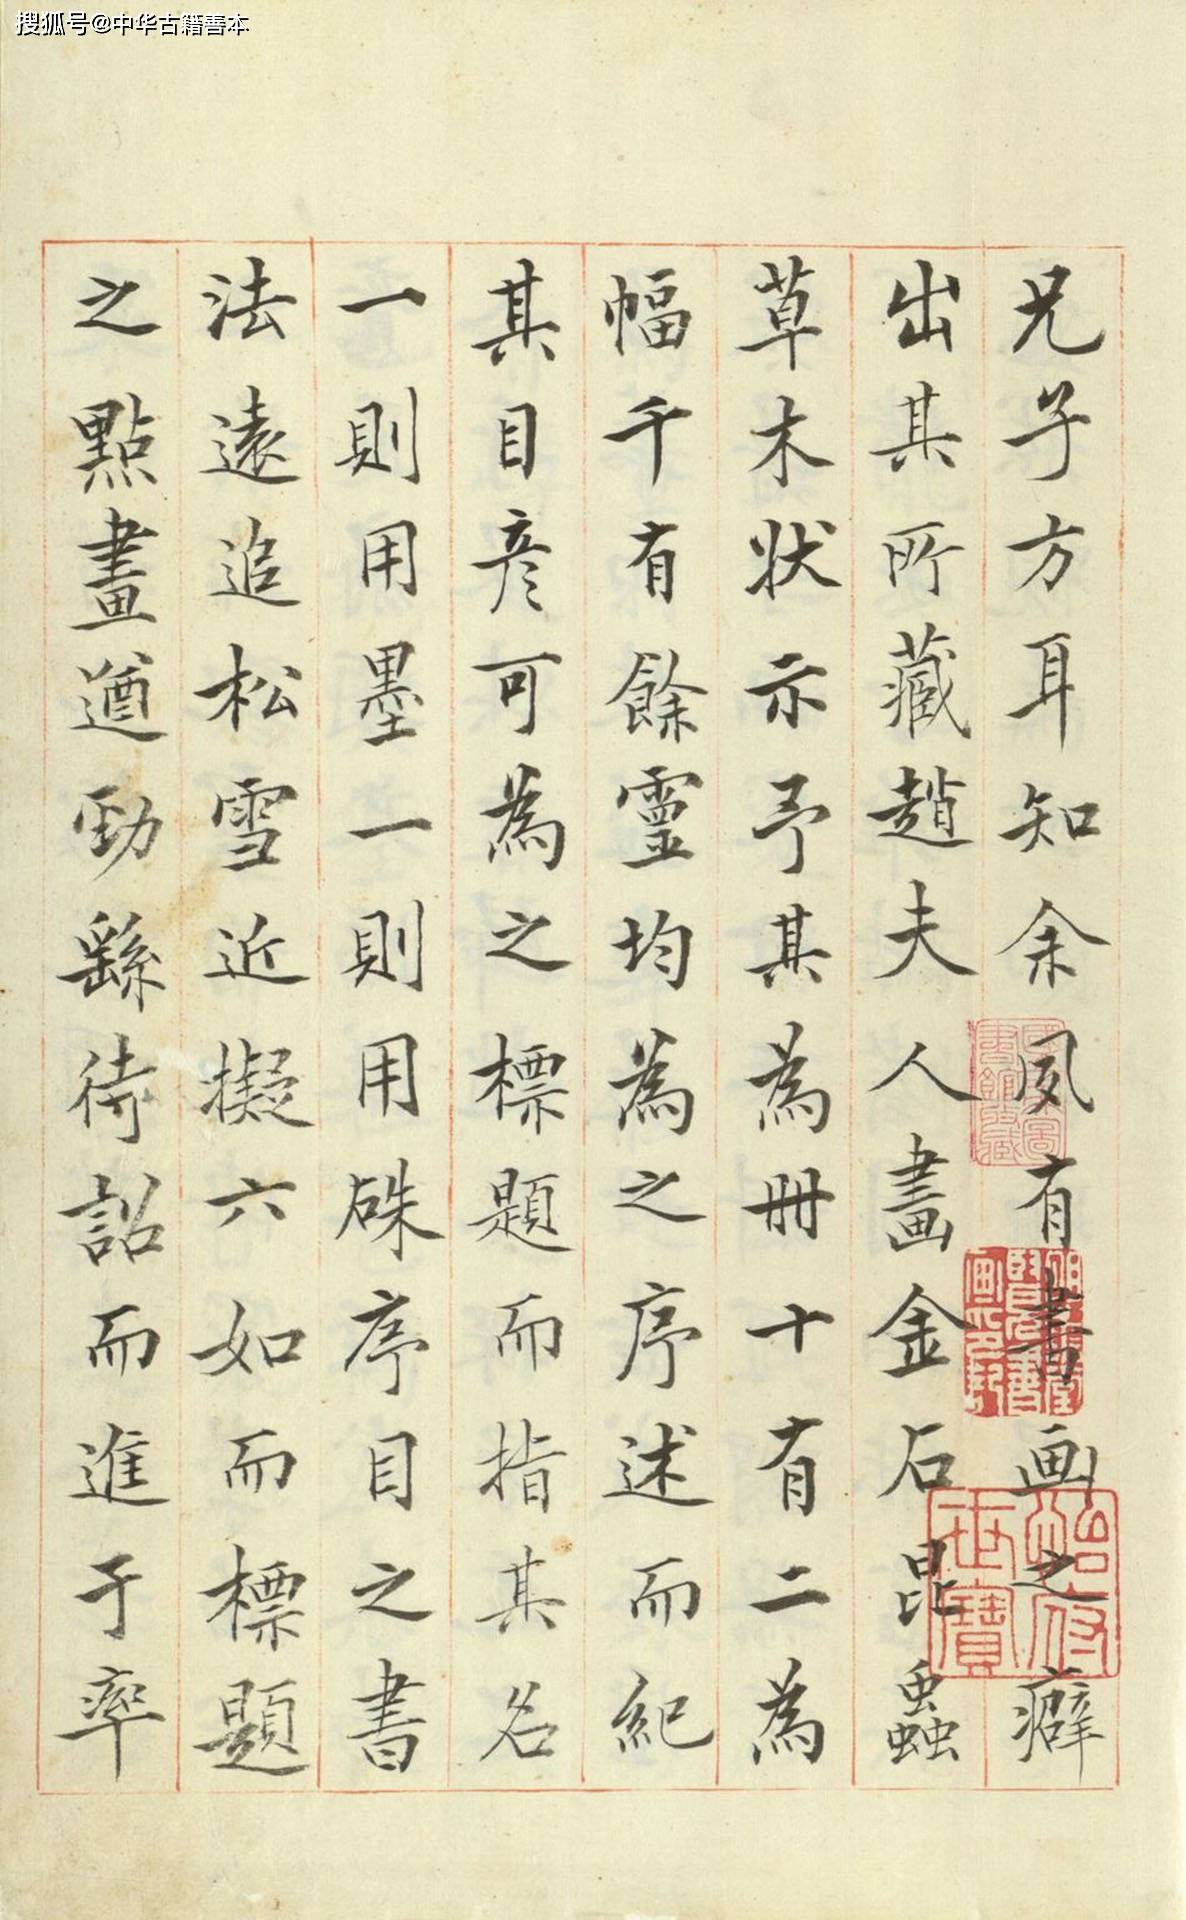 搜狐号@中华古籍善本
兄子方耳知余夙有書画之癖
出其所藏趙夫人畫金石昆蟲
草木状示予其為冊十有二為
幅千有餘靈均為之序述而紀
其目彦可為之標題而指其名
一則用墨一則用硃序目之書
法遠追松雪近擬六如而標題
之點畫遒勁繇待詔而進于率